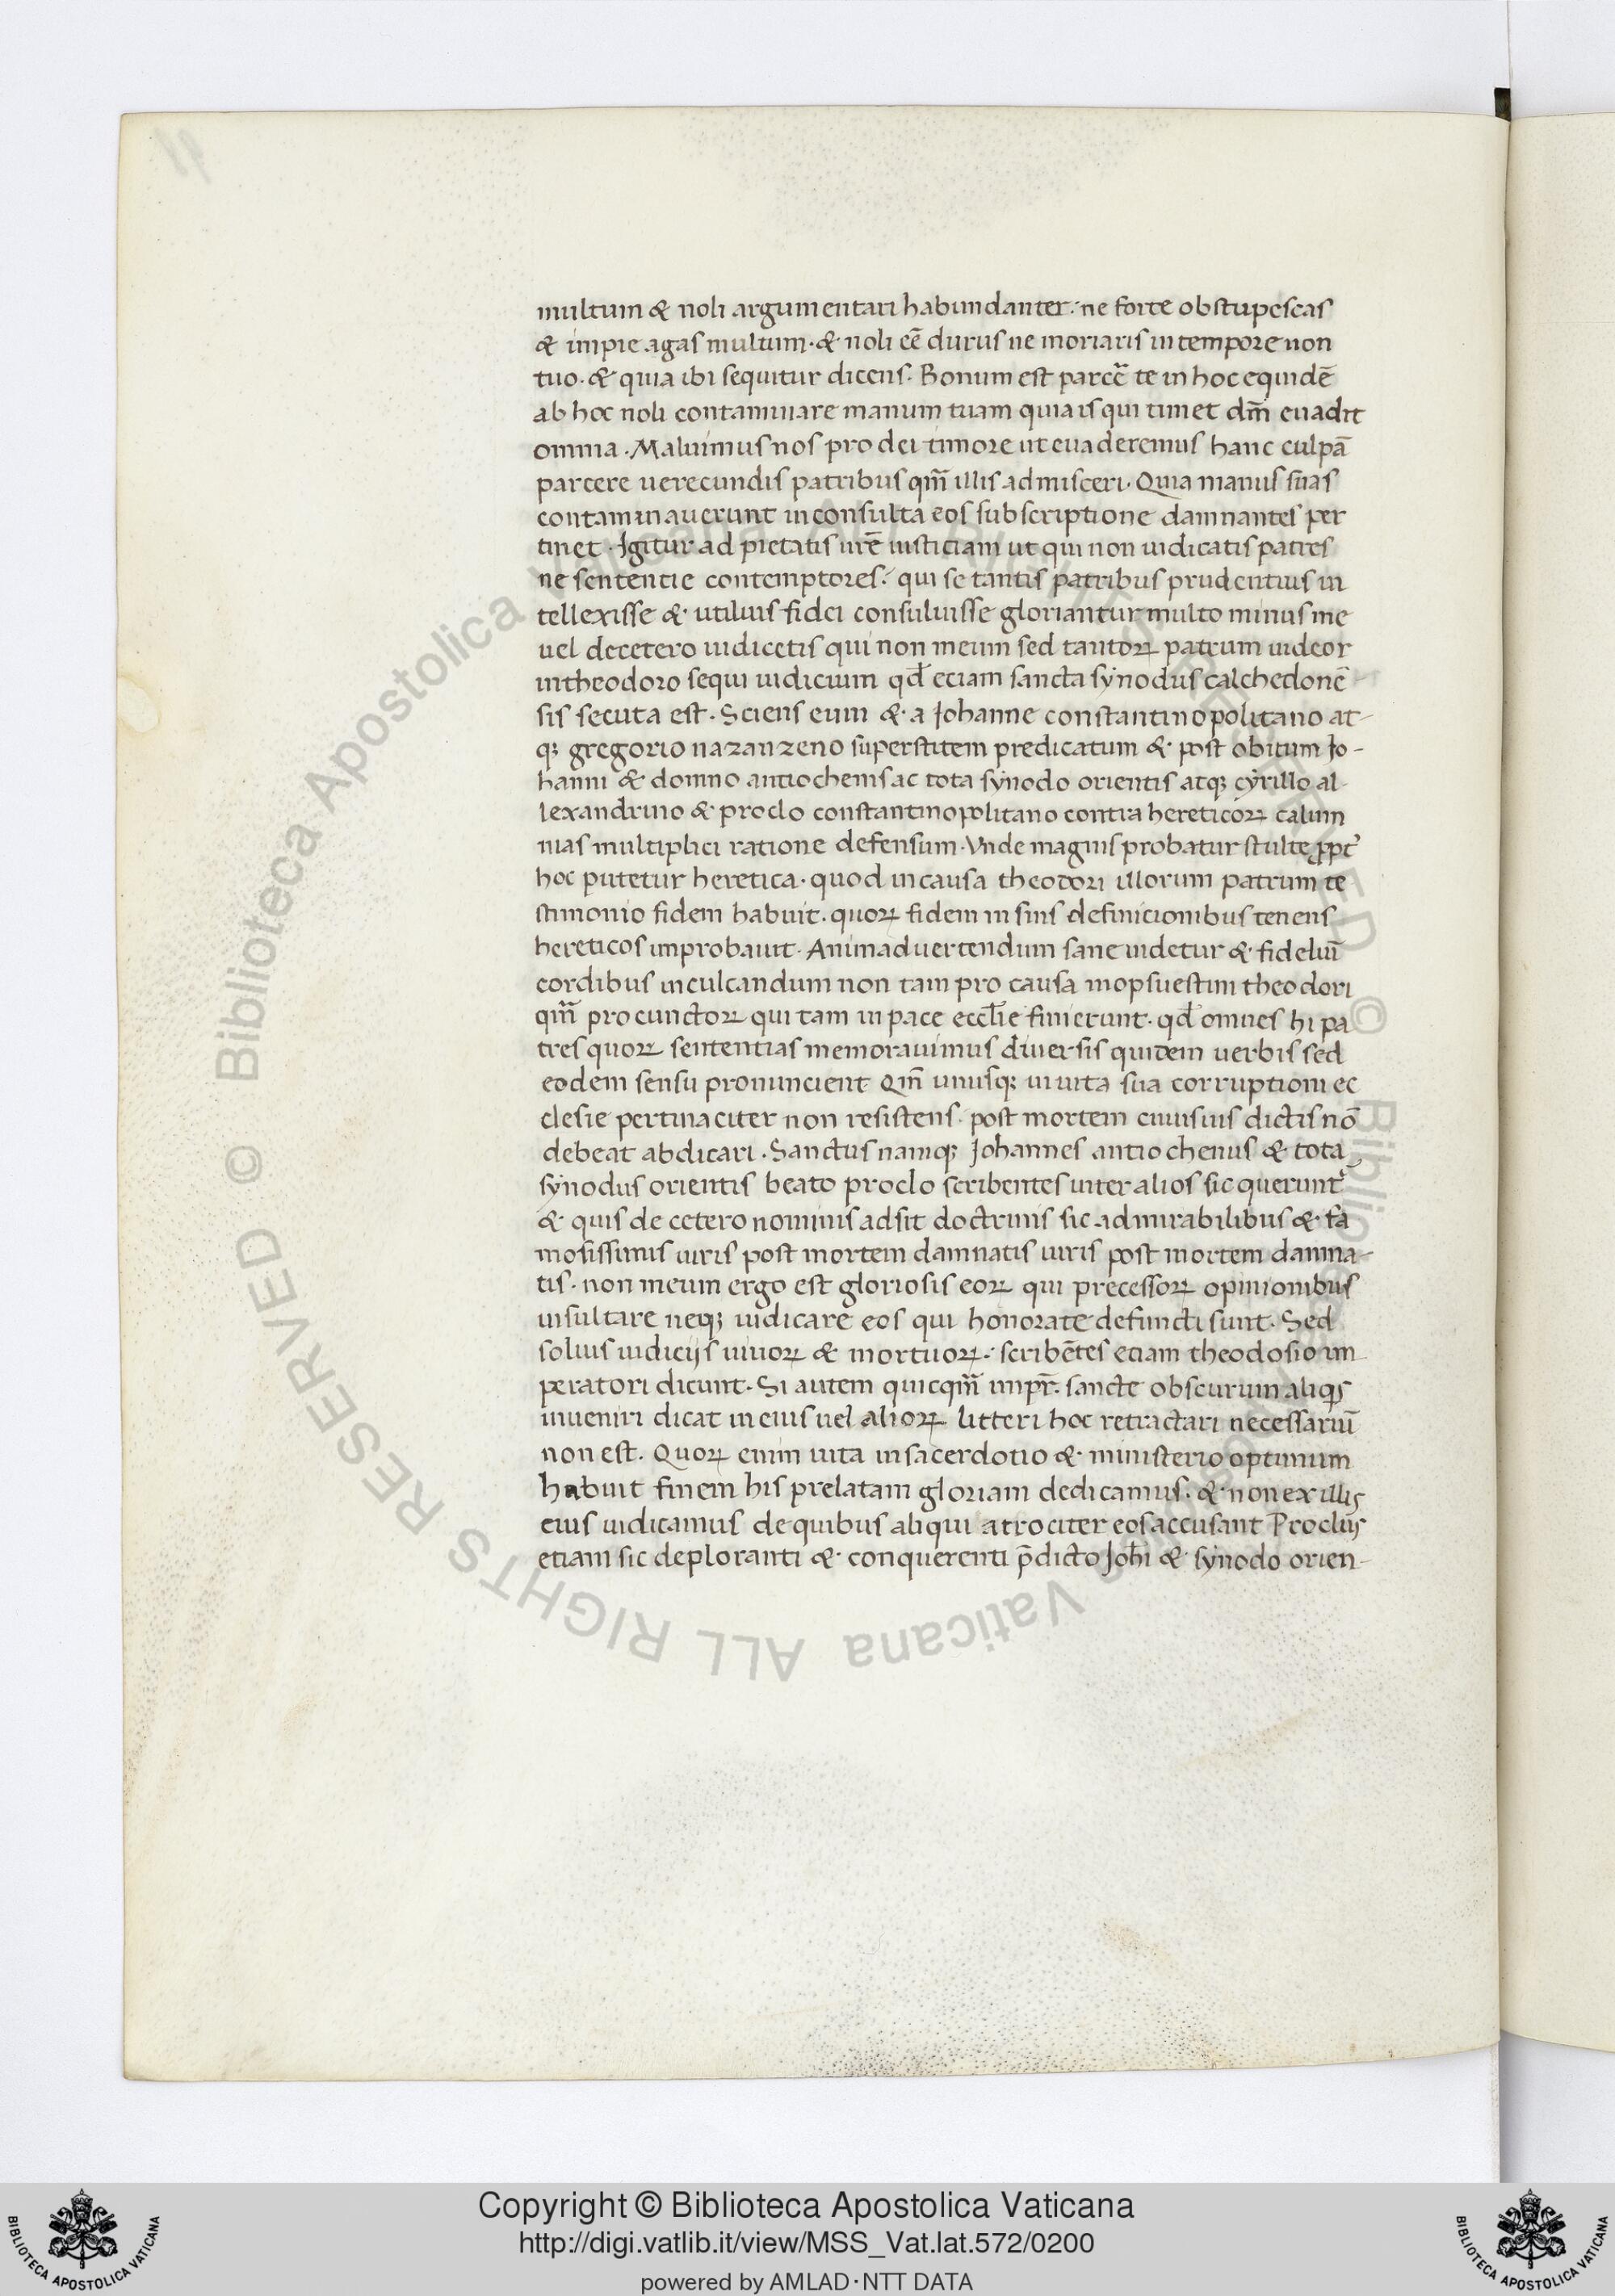 multum & noli argumentari habundanter. ne forte obstupescas
& impie agas multum. & noli eē durus ne moriaris in tempore non
tuo. & quia ibi sequitur dicens. Bonum est te in hoc equidē
ab hoc noli contaminare manum tuam quia is qui timet dm̄ euadit
omnia. Maluimus nos pro dei timore ut euaderemus hanc culpā
parcere uerecundis patribus qm̄ illis admisceri. Quia manus suas
contaminauerunt inconsulta eos subscriptione damnantes per
tinet. Igitur ad pietatis ur̄e iusticiam ut qui non iudicatis patres
ne sententie contemptores. qui se tantis patribus prudentius in
tellexisse & utilius fidei consuluisse gloriantur multo minus me
uel decetero iudicetis qui non meum sed tantoꝝ patrum uideor
in theodoro sequi iudicium qd̄ eciam sancta synodus calchedonē
sis secuta est. Sciens eum & a Johanne constantinopolitano at-
qꝫ gregorio nazanzeno superstitem predicatum & post obitum Jo-
hanni & domno antiochenis ac tota synodo orientis atqꝫ cyrillo al-
lexandrino & proclo constantinopolitano contra hereticoꝝ calum
nias multiplici ratione defensum. Vnde magnis probatur stulte
hoc putetur heretica. quod in causa theodori illorum patrum te
stimonio fidem habuit. quoꝝ fidem in suis definicionibus tenens
hereticos improbauit. Animaduertendum sane uidetur & fideliū
cordibus inculcandum non tam pro causa mopsuestini theodori
qm̄ pro cunctoꝝ qui tam in pace eccl̄ie finierunt. qd̄ omnes hi pa
tres quoꝝ sententias memorauimus diuersis quidem uerbis sed
eodem sensu pronuncient Qm̄ unusqꝫ in uita sua corruptioni ec
clesie pertinaciter non resistens. post mortem cuiusuis dictis nō
debeat abdicari. Sanctus namqꝫ Johannes antiochenus & tota
synodus orientis beato proclo scribentes inter alios sic querunt
& quis de cetero nominis adsit doctrinis sic admirabilibus & fa
mosissimis uiris post mortem damnatis uiris post mortem damna-
tis. non meum ergo est gloriosis eoꝝ qui precessoꝝ opinionibus
insultare neqꝫ iudicare eos qui honorate defuncti sunt. Sed
solius iudicijs uiuoꝝ & mortuoꝝ. scribētes etiam theodosio im
peratori dicunt. Si autem quicqm̄ impr̄. sancte obscurum aliqis
inueniri dicat in eius uel alioꝝ litteri hoc retractari necessariū
non est. Quoꝝ enim uita in sacerdotio & ministerio optimum
habuit finem his prelatam gloriam dedicamus. & non ex illis
eius iudicamus de quibus aliqui atrociter eos accusant Proclus
etiam sic deploranti & conquerenti p̄dicto Joh̄i & synodo orien-
Copyright © Biblioteca Apostolica Vaticana
http://digi.vatlib.it/view/MSS_Vat.lat.572/0200
powered by AMLAD·NTT DATA
BIBLIOTECA APOSTOLICA VATICANA
BIBLIOTECA APOSTOLICA VATICANA
© Biblioteca Apostolica Vaticana ALL RIGHTS RESERVED © Biblioteca Apostolica Vaticana ALL RIGHTS RESERVED